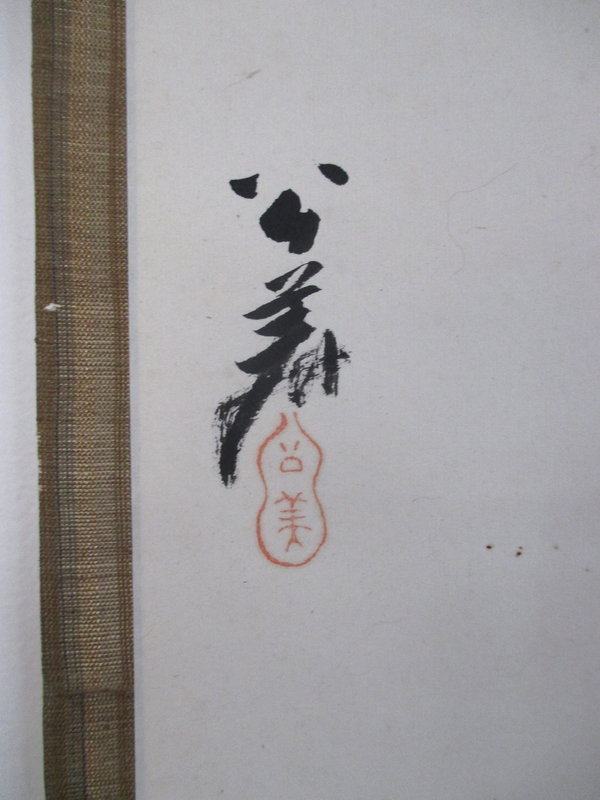 公美
公美